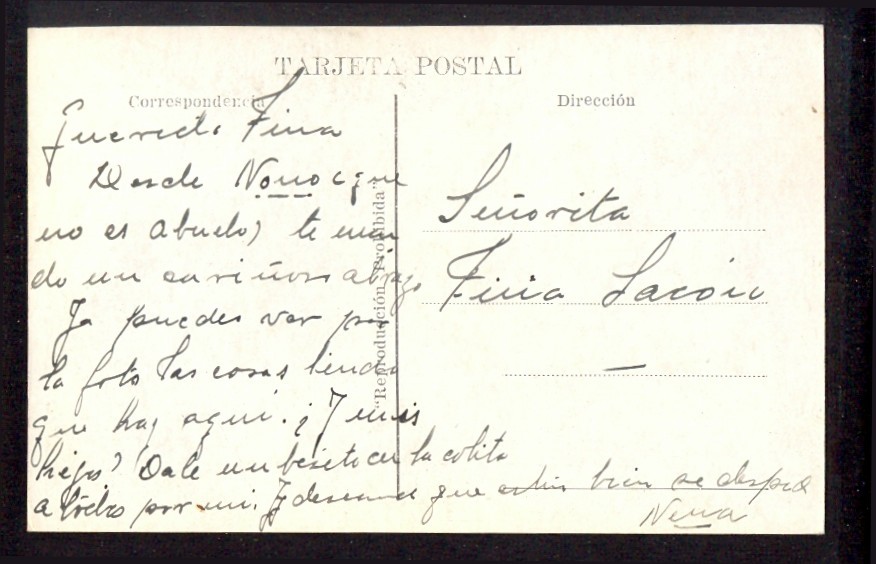 TARJETA POSTAL
Correspondencia
Dirección
Querida Fina
Desde Nono (que
no es abuelo) te man
do un cariñoso abrazo
Ya puedes ver por
la foto las cosas lindas
que hay aquí. ¿Y mis
hijos? Dale un besito en la colita
a todos por mi. Y deseando que estén bien se despide
Nena
"Reproducción Prohibida"
Señorita
Fina